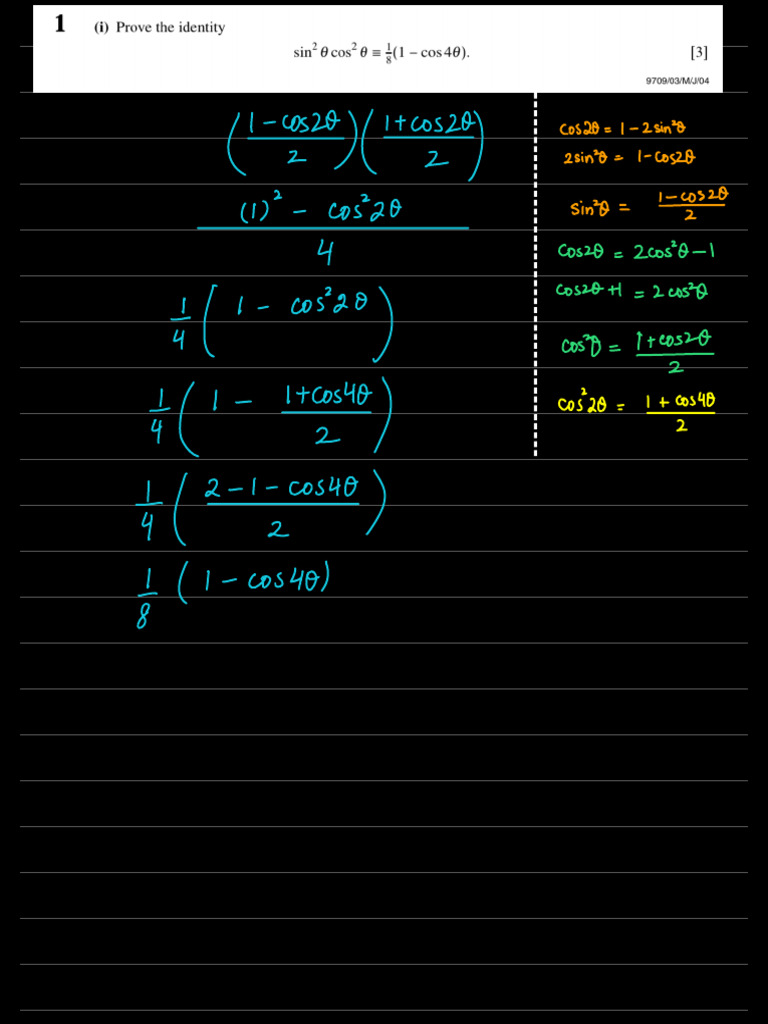 1 (i) Prove the identity
sin² θ cos² θ ≡ 1/8(1 − cos 4θ). [3]
9709/03/M/J/04
((1 − cos2θ)/2)((1 + cos2θ)/2)
((1)² − cos²2θ)/4
1/4 (1 − cos²2θ)
1/4 (1 − (1+cos4θ)/2)
1/4 ((2 − 1 − cos4θ)/2)
1/8 (1 − cos4θ)
cos2θ = 1 − 2sin²θ
2sin²θ = 1 − cos2θ
sin²θ = (1 − cos2θ)/2
cos2θ = 2cos²θ − 1
cos2θ + 1 = 2cos²θ
cos²θ = (1 + cos2θ)/2
cos²2θ = (1 + cos4θ)/2